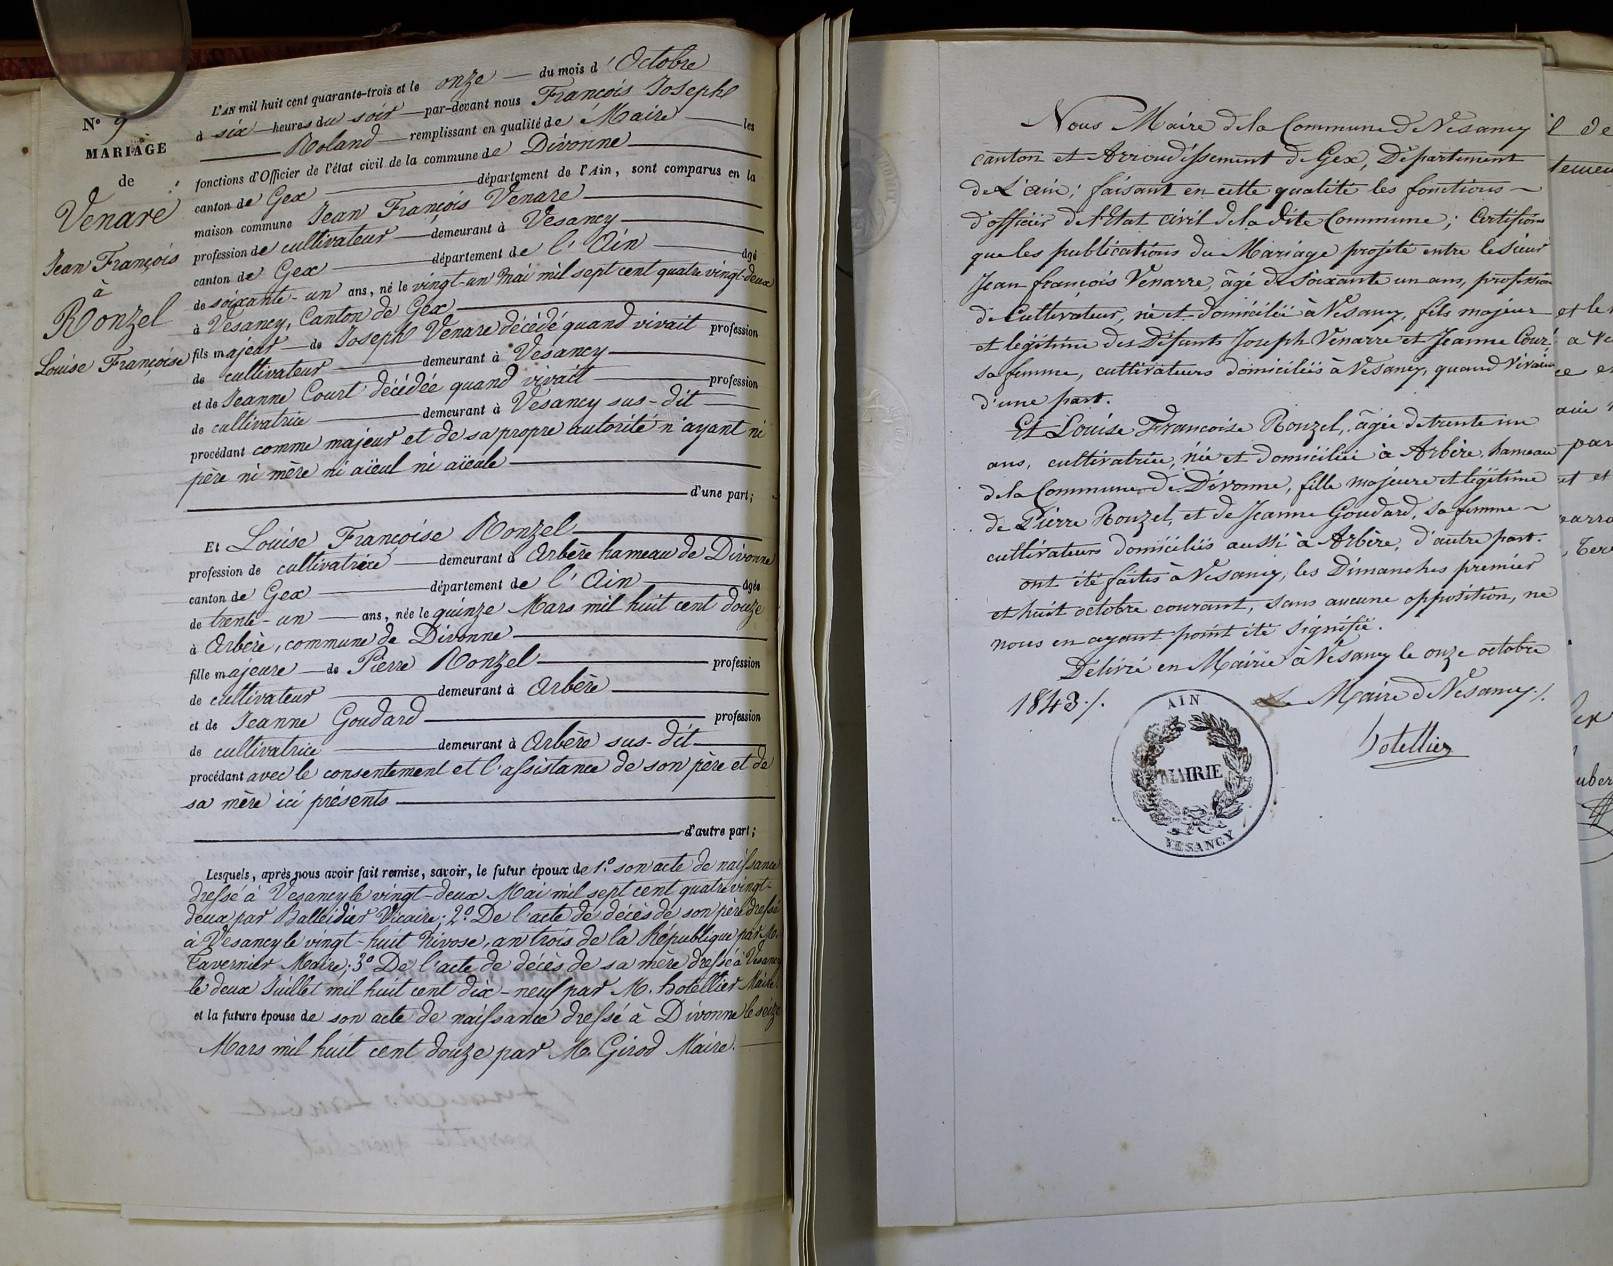 N° 9
MARIAGE
de
Venare
Jean François
à
Ronzel
Louise Françoise
L'AN mil huit cent quarante-trois et le onze du mois d'Octobre
à six heures du soir par-devant nous François Joseph
Roland remplissant en qualité de Maire les
fonctions d'Officier de l'état civil de la commune de Divonne
canton de Gex département de l'Ain, sont comparus en la
maison commune Jean François Venare
profession de cultivateur demeurant à Vesancy
canton de Gex département de l'Ain agé
de soixante-un ans, né le vingt-un Mai mil sept cent quatre vingt-deux
à Vesancy, Canton de Gex
fils majeur de Joseph Venare décédé quand vivait profession
de cultivateur demeurant à Vesancy
et de Jeanne Court décédée quand vivait profession
de cultivatrice demeurant à Vesancy sus-dit
procédant comme majeur et de sa propre autorité n'ayant ni
père ni mère ni aïeul ni aïeule
d'une part;
Et Louise Françoise Ronzel
profession de cultivatrice demeurant à Arbère hameau de Divonne
canton de Gex département de l'Ain agée
de trente-un ans, née le quinze Mars mil huit cent douze
à Arbère, commune de Divonne
fille majeure de Pierre Ronzel profession
de cultivateur demeurant à Arbère
et de Jeanne Goudard profession
de cultivatrice demeurant à Arbère sus-dit
procédant avec le consentement et l'assistance de son père et de
sa mère ici présents
d'autre part;
Lesquels, après nous avoir fait remise, savoir, le futur époux de 1.° son acte de naissance
dressé à Vesancy le vingt-deux Mai mil sept cent quatre vingt-
deux par Balleidier Vicaire; 2.° De l'acte de décès de son père dressé
à Vesancy le vingt-huit Nivose, an trois de la République par M.
Tavernier Maire; 3.° De l'acte de décès de sa mère dressé à Vesancy
le deux Juillet mil huit cent dix-neuf par M. hotellier Maire
et la future épouse de son acte de naissance dressé à Divonne le seize
Mars mil huit cent douze par M. Girod Maire.
Nous Maire de la Commune de Vesancy
canton et Arrondissement de Gex, Département
de L'ain; faisant en cette qualité les fonctions
d'officier de l'Etat civil de la dite Commune; Certifions
que les publications du Mariage projeté entre le sieur
Jean françois Venarre, âgé de soixante un ans, profession
de Cultivateur, né et domicilié à Vesancy, fils majeur
et légitime des Défunts Joseph Venarre et Jeanne Court
sa femme, cultivateurs domiciliés à Vesancy, quand vivaient
d'une part.
Et Louise Francoise Ronzel, âgée de trente un
ans, cultivatrice, née et domiciliée à Arbère, hameau
de la Commune de Divonne, fille majeure et légitime
de Pierre Ronzel, et de Jeanne Goudard, sa femme
cultivateurs domiciliés aussi à Arbère, d'autre part.
ont été faites à Vesancy, les Dimanches premier
et huit octobre courant, sans aucune opposition, ne
nous en ayant point été signifié.
Délivré en Mairie à Vesancy le onze octobre
1843./.
Le Maire de Vesancy./.
hotellier
AIN
MAIRIE
VESANCY